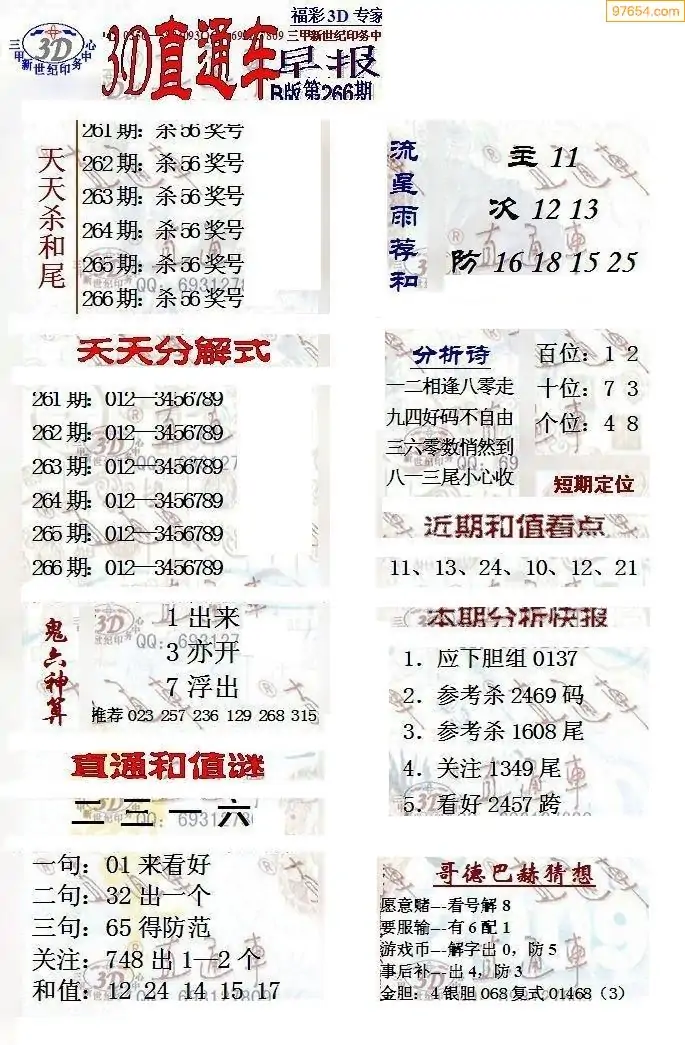 97654.com
福彩3D 专家
三甲新世纪印务中心
3D
三甲新世纪印务中
3D直通车
早报
B版第266期
天天杀和尾
261期: 杀56奖号
262期: 杀56奖号
263期: 杀56奖号
264期: 杀56奖号
265期: 杀56奖号
266期: 杀56奖号
流星雨荐和
主 11
次 12 13
防 16 18 15 25
天天分解式
261期: 012—3456789
262期: 012—3456789
263期: 012—3456789
264期: 012—3456789
265期: 012—3456789
266期: 012—3456789
分析诗
一二相逢八零走
九四好码不自由
三六零数悄然到
八一三尾小心收
百位: 1 2
十位: 7 3
个位: 4 8
短期定位
近期和值看点
11、13、24、10、12、21
鬼六神算
1出来
3亦开
7浮出
推荐 023 257 236 129 268 315
本期分析快报
1. 应下胆组0137
2. 参考杀2469码
3. 参考杀1608尾
4. 关注1349尾
5. 看好2457跨
直通和值谜
二三一六
一句: 01来看好
二句: 32出一个
三句: 65得防范
关注: 748出1—2个
和值: 12 24 14 15 17
哥德巴赫猜想
愿意赌---看号解8
要服输---有6配1
游戏币---解字出0, 防5
事后补---出4, 防3
金胆: 4银胆068复式01468（3）